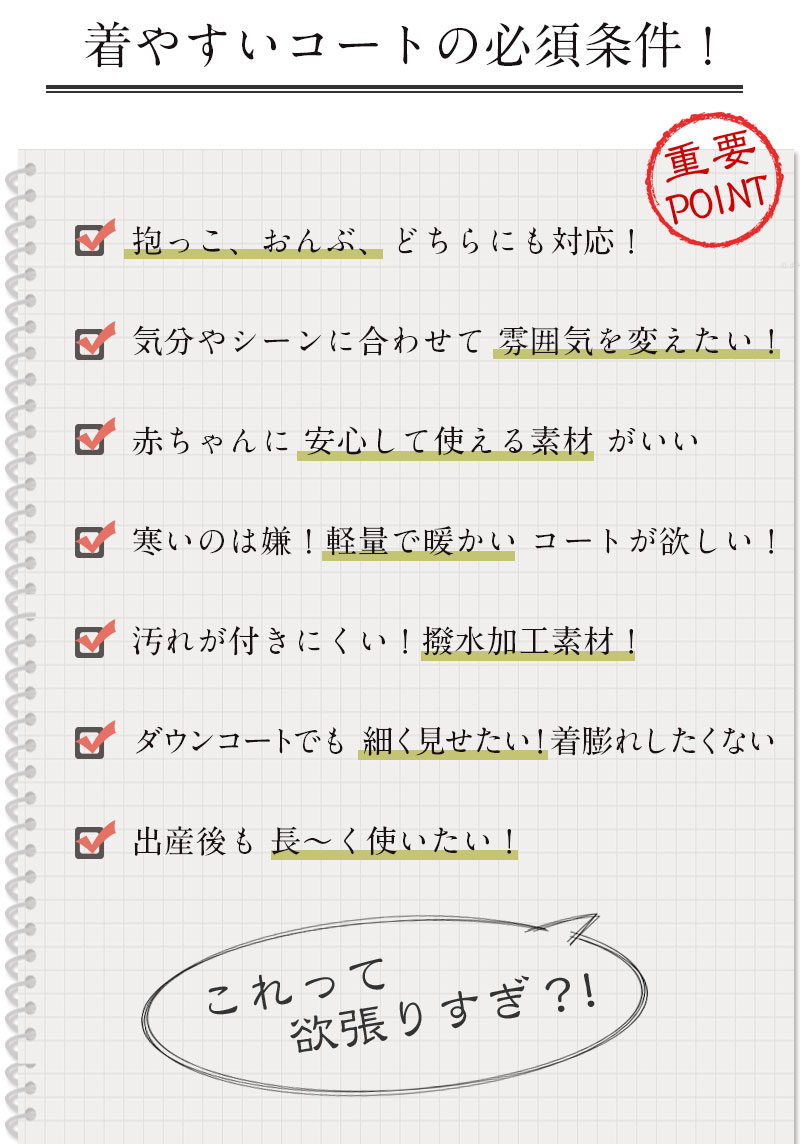 着やすいコートの必須条件！
重要
POINT
抱っこ、おんぶ、どちらにも対応！
気分やシーンに合わせて 雰囲気を変えたい！
赤ちゃんに 安心して使える素材 がいい
寒いのは嫌！軽量で暖かい コートが欲しい！
汚れが付きにくい！撥水加工素材！
ダウンコートでも 細く見せたい！着膨れしたくない
出産後も 長～く使いたい！
これって
欲張りすぎ？！